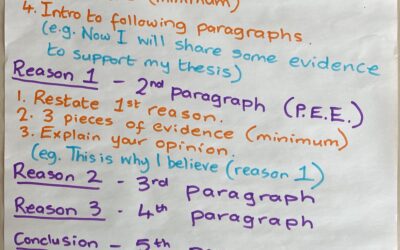 (minimum)
4. Intro to following paragraphs.
(e.g. Now I will share some evidence
to support my thesis)
Reason 1 - 2nd paragraph (P.E.E.)
1. Restate 1st reason.
2. 3 pieces of evidence (minimum)
3. Explain your opinion.
(eg. This is why I believe (reason 1)
Reason 2 - 3rd paragraph
Reason 3 - 4th paragraph
Conclusion - 5th